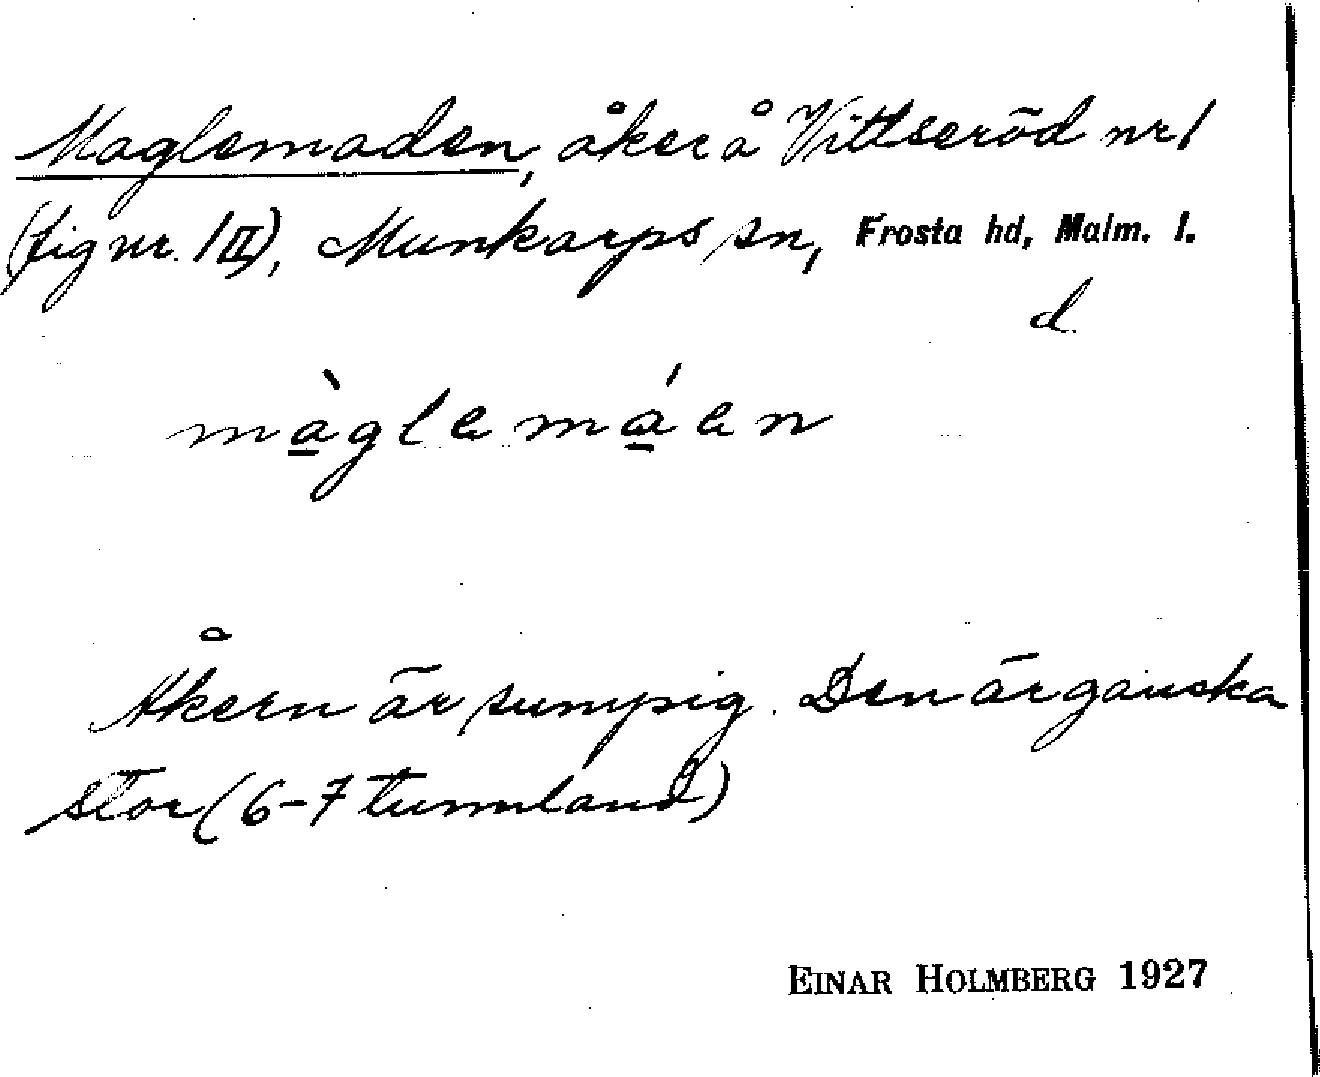 Maglemaden, åker å Vittseröd nr 1
(fig nr. 1 II), Munkarps sn, Frosta hd, Malm. l.
d.
màglemáen
Åkern är sumpig. Den är ganska
stor (6-7 tunnland)
EINAR HOLMBERG 1927